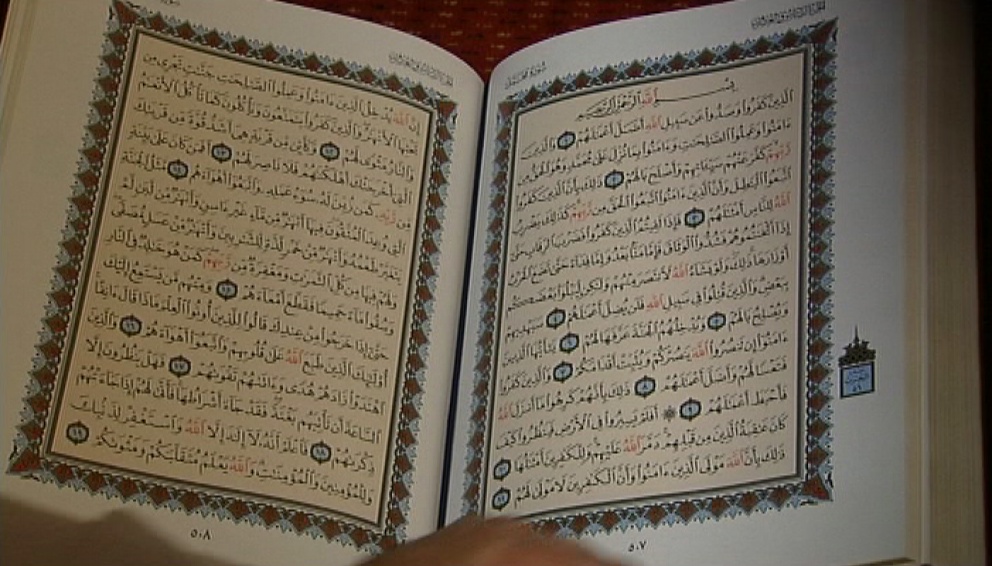 سورة محمد
بِسْمِ اللَّهِ الرَّحْمَٰنِ الرَّحِيمِ
الَّذِينَ كَفَرُوا وَصَدُّوا عَن سَبِيلِ اللَّهِ أَضَلَّ أَعْمَٰلَهُمْ ١ وَالَّذِينَ
ءَامَنُوا وَعَمِلُوا الصَّٰلِحَٰتِ وَءَامَنُوا بِمَا نُزِّلَ عَلَىٰ مُحَمَّدٍ وَهُوَ الْحَقُّ مِن
رَّبِّهِمْ كَفَّرَ عَنْهُمْ سَيِّـَٔاتِهِمْ وَأَصْلَحَ بَالَهُمْ ٢ ذَٰلِكَ بِأَنَّ الَّذِينَ كَفَرُوا
اتَّبَعُوا الْبَٰطِلَ وَأَنَّ الَّذِينَ ءَامَنُوا اتَّبَعُوا الْحَقَّ مِن رَّبِّهِمْ كَذَٰلِكَ يَضْرِبُ
اللَّهُ لِلنَّاسِ أَمْثَٰلَهُمْ ٣ فَإِذَا لَقِيتُمُ الَّذِينَ كَفَرُوا فَضَرْبَ الرِّقَابِ حَتَّىٰ
إِذَا أَثْخَنتُمُوهُمْ فَشُدُّوا الْوَثَاقَ فَإِمَّا مَنًّا بَعْدُ وَإِمَّا فِدَاءً حَتَّىٰ تَضَعَ الْحَرْبُ
أَوْزَارَهَا ذَٰلِكَ وَلَوْ يَشَاءُ اللَّهُ لَانتَصَرَ مِنْهُمْ وَلَٰكِن لِّيَبْلُوَا بَعْضَكُم
بِبَعْضٍ وَالَّذِينَ قُتِلُوا فِي سَبِيلِ اللَّهِ فَلَن يُضِلَّ أَعْمَٰلَهُمْ ٤ سَيَهْدِيهِمْ
وَيُصْلِحُ بَالَهُمْ ٥ وَيُدْخِلُهُمُ الْجَنَّةَ عَرَّفَهَا لَهُمْ ٦ يَٰأَيُّهَا الَّذِينَ
ءَامَنُوا إِن تَنصُرُوا اللَّهَ يَنصُرْكُمْ وَيُثَبِّتْ أَقْدَامَكُمْ ٧ وَالَّذِينَ كَفَرُوا
فَتَعْسًا لَّهُمْ وَأَضَلَّ أَعْمَٰلَهُمْ ٨ ذَٰلِكَ بِأَنَّهُمْ كَرِهُوا مَا أَنزَلَ اللَّهُ
فَأَحْبَطَ أَعْمَٰلَهُمْ ٩ ۞ أَفَلَمْ يَسِيرُوا فِي الْأَرْضِ فَيَنظُرُوا كَيْفَ
كَانَ عَٰقِبَةُ الَّذِينَ مِن قَبْلِهِمْ دَمَّرَ اللَّهُ عَلَيْهِمْ وَلِلْكَٰفِرِينَ أَمْثَٰلُهَا ١٠
ذَٰلِكَ بِأَنَّ اللَّهَ مَوْلَى الَّذِينَ ءَامَنُوا وَأَنَّ الْكَٰفِرِينَ لَا مَوْلَىٰ لَهُمْ ١١
٥٠٧
إِنَّ اللَّهَ يُدْخِلُ الَّذِينَ ءَامَنُوا وَعَمِلُوا الصَّٰلِحَٰتِ جَنَّٰتٍ تَجْرِي مِن
تَحْتِهَا الْأَنْهَٰرُ وَالَّذِينَ كَفَرُوا يَتَمَتَّعُونَ وَيَأْكُلُونَ كَمَا تَأْكُلُ الْأَنْعَٰمُ
وَالنَّارُ مَثْوًى لَّهُمْ ١٢ وَكَأَيِّن مِّن قَرْيَةٍ هِيَ أَشَدُّ قُوَّةً مِّن قَرْيَتِكَ
الَّتِي أَخْرَجَتْكَ أَهْلَكْنَٰهُمْ فَلَا نَاصِرَ لَهُمْ ١٣ أَفَمَن كَانَ عَلَىٰ بَيِّنَةٍ
مِّن رَّبِّهِ كَمَن زُيِّنَ لَهُ سُوءُ عَمَلِهِ وَاتَّبَعُوا أَهْوَاءَهُم ١٤ مَّثَلُ الْجَنَّةِ
الَّتِي وُعِدَ الْمُتَّقُونَ فِيهَا أَنْهَٰرٌ مِّن مَّاءٍ غَيْرِ ءَاسِنٍ وَأَنْهَٰرٌ مِّن لَّبَنٍ لَّمْ
يَتَغَيَّرْ طَعْمُهُ وَأَنْهَٰرٌ مِّنْ خَمْرٍ لَّذَّةٍ لِّلشَّٰرِبِينَ وَأَنْهَٰرٌ مِّنْ عَسَلٍ مُّصَفًّى
وَلَهُمْ فِيهَا مِن كُلِّ الثَّمَرَٰتِ وَمَغْفِرَةٌ مِّن رَّبِّهِمْ كَمَنْ هُوَ خَٰلِدٌ فِي النَّارِ
وَسُقُوا مَاءً حَمِيمًا فَقَطَّعَ أَمْعَاءَهُمْ ١٥ وَمِنْهُم مَّن يَسْتَمِعُ إِلَيْكَ
حَتَّىٰ إِذَا خَرَجُوا مِنْ عِندِكَ قَالُوا لِلَّذِينَ أُوتُوا الْعِلْمَ مَاذَا قَالَ ءَانِفًا
أُولَٰئِكَ الَّذِينَ طَبَعَ اللَّهُ عَلَىٰ قُلُوبِهِمْ وَاتَّبَعُوا أَهْوَاءَهُمْ ١٦ وَالَّذِينَ
اهْتَدَوْا زَادَهُمْ هُدًى وَءَاتَىٰهُمْ تَقْوَىٰهُمْ ١٧ فَهَلْ يَنظُرُونَ إِلَّا
السَّاعَةَ أَن تَأْتِيَهُم بَغْتَةً فَقَدْ جَاءَ أَشْرَاطُهَا فَأَنَّىٰ لَهُمْ إِذَا جَاءَتْهُمْ
ذِكْرَىٰهُمْ ١٨ فَاعْلَمْ أَنَّهُ لَا إِلَٰهَ إِلَّا اللَّهُ وَاسْتَغْفِرْ لِذَنبِكَ
وَلِلْمُؤْمِنِينَ وَالْمُؤْمِنَٰتِ وَاللَّهُ يَعْلَمُ مُتَقَلَّبَكُمْ وَمَثْوَىٰكُمْ ١٩
٥٠٨